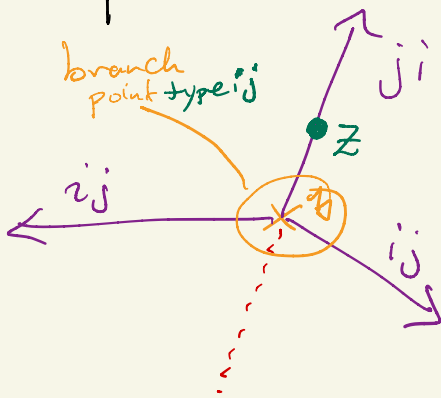 branch
point type ij
ji
z
ij
ij